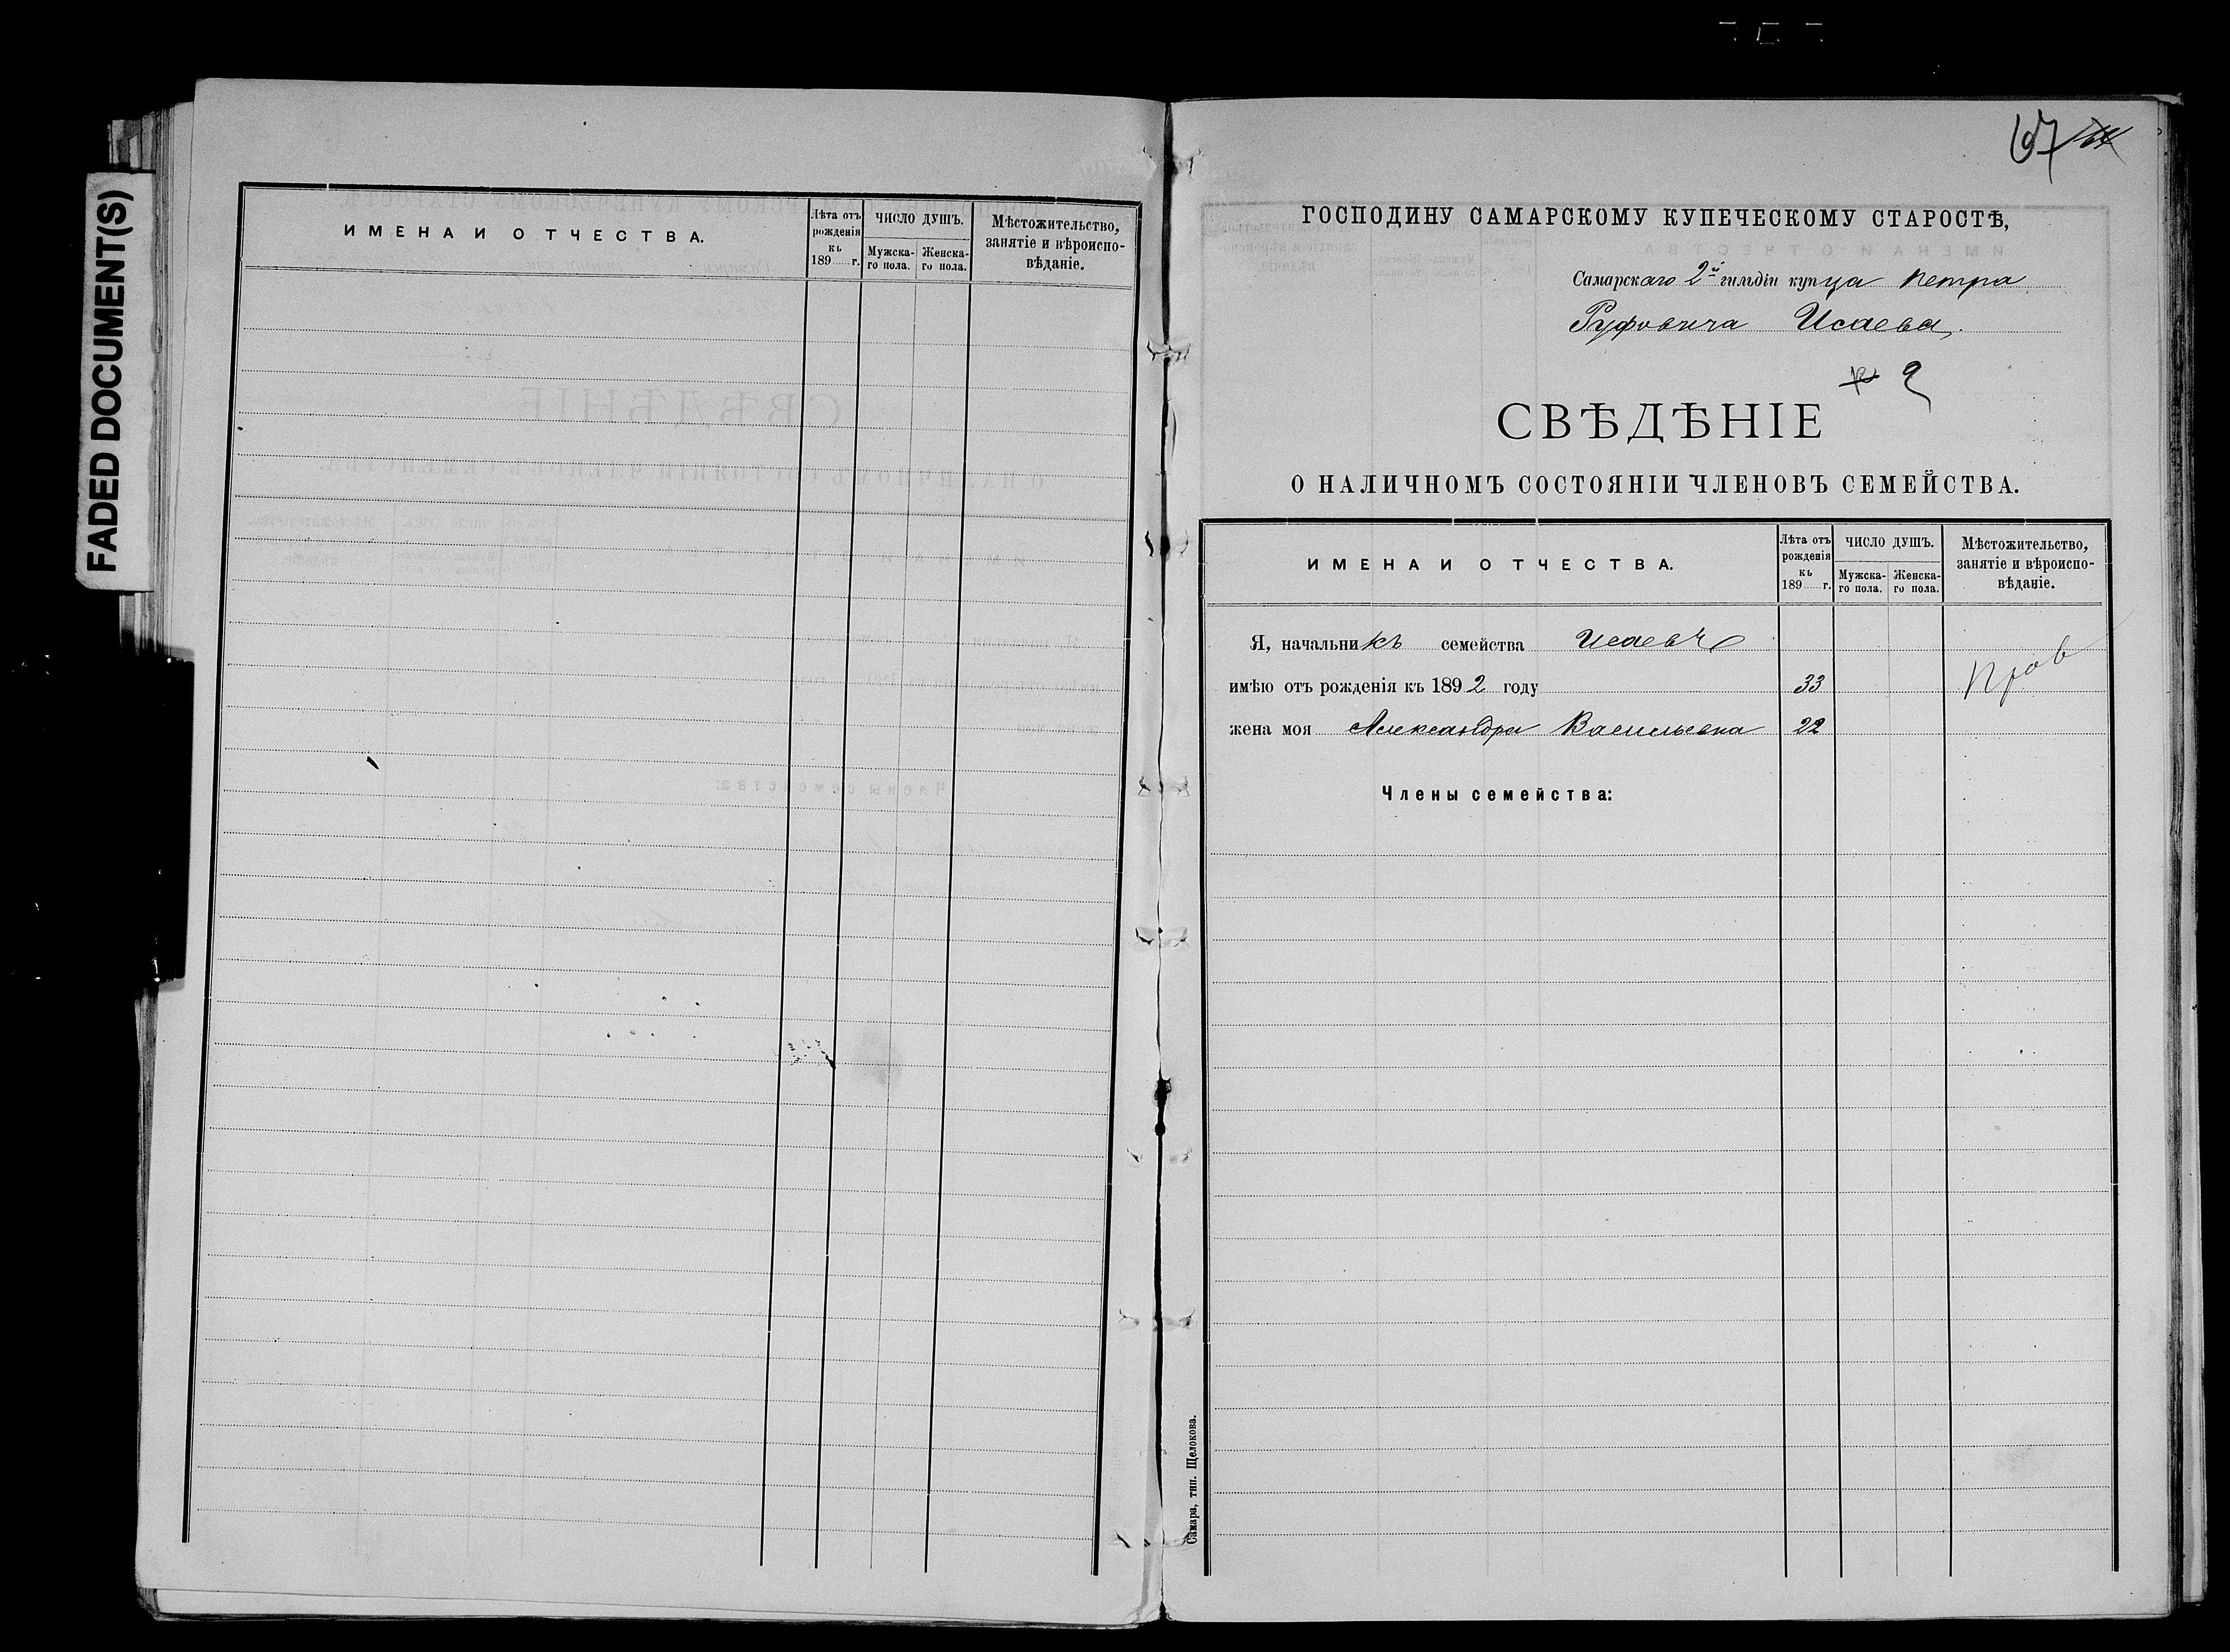 FADED DOCUMENT(S)
ИМЕНА И ОТЧЕСТВА.
Лѣта отъ рожденія къ 189 г.
ЧИСЛО ДУШЪ.
Мужска-го пола.
Женска-го пола.
Мѣстожительство, занятіе и вѣроиспо-вѣданіе.
67
ГОСПОДИНУ САМАРСКОМУ КУПЕЧЕСКОМУ СТАРОСТѢ,
Самарскаго 2й гильдіи купца Петра
Руфовича Исаева,
СВѢДѢНІЕ
О НАЛИЧНОМЪ СОСТОЯНІИ ЧЛЕНОВЪ СЕМЕЙСТВА.
ИМЕНА И ОТЧЕСТВА.
Лѣта отъ рожденія къ 189 г.
ЧИСЛО ДУШЪ.
Мужска-го пола.
Женска-го пола.
Мѣстожительство, занятіе и вѣроиспо-вѣданіе.
Я, начальникъ семейства Исаевъ
имѣю отъ рожденія къ 1892 году 33
Пров
жена моя Александра Васильевна 22
Члены семейства:
Самара, тип. Щелокова.